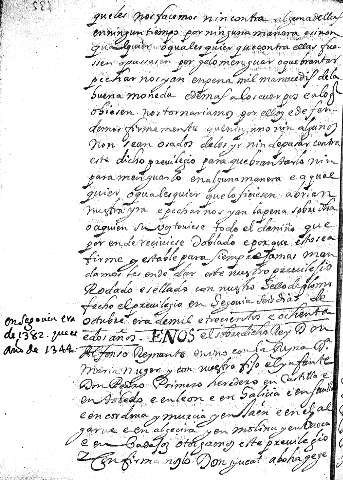 queles nos facemos nin contra alguna dellas
en ningun tiempo por ninguna manera e si non
qual quier o quales quier que contra ellas fue
sen o pasasen por gelo menguar o quebrantar
pecharnos yan en pena mil maravedis de la
buena moneda e demas a los cuerpos e a lo q
obiesen nos tornariamos por ello e de fen
demos firmemente que nin uno nin algunos
non sean osados de les yr nin de pasar contra
este dicho previlegio para quebrantarlo nin
para menguarlo en alguna manera e a qual
quier o quales quier que lo ficiesen abrien
nuestra yra e pecharnos yan la pena sobre dha
o a quien su voz toviese todo el daño que
por ende recibiese doblado e porque esto sea
firme y estable para siempre jamas man
damosles ende dar este nuestro previlegio
Rodado e sellado con nuestro sello de plomo
fecho el previlegio en Segovia dias de
octubre era de mil e trecientos e ochenta
e dos años. E NOS el sobre dicho Rey D On
en Segovia era
de 1382. que es
año de 1344
Alfonso Reynante en uno con la Reyna Dª
Maria mi muger y con nuestro fijo el ynfante
Don Pedro Primero heredero en Castilla e
en Toledo e en Leon e en Galicia e en Sevilla
e en Cordova e Murcia y en Jaen e en el Al
garve e en Algecira y en Molina y en Baeza
e en Badajoz otorgamos este previlegio
e Confirmamoslo Don